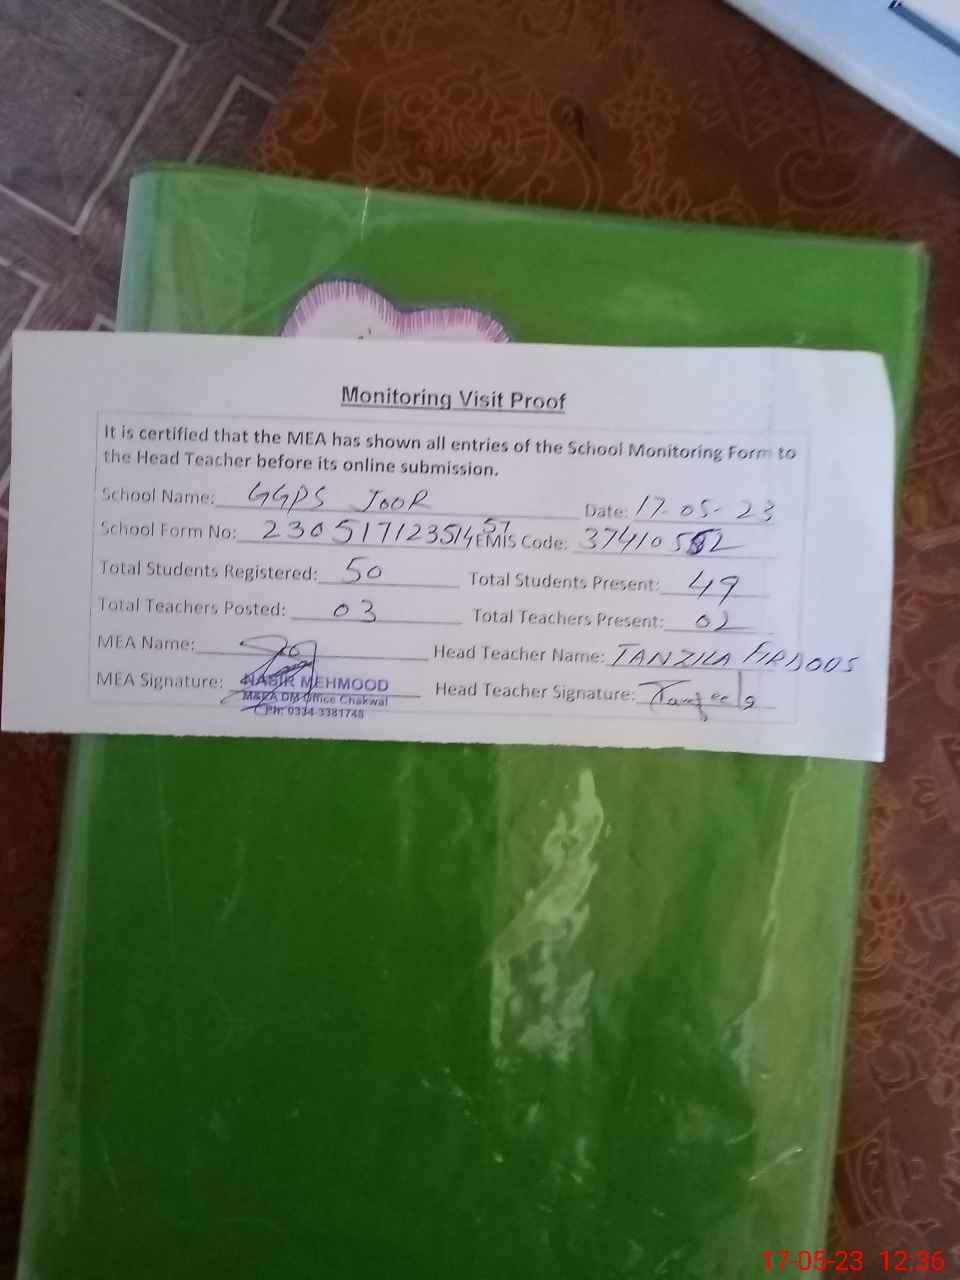 Monitoring Visit Proof
It is certified that the MEA has shown all entries of the School Monitoring Form to
the Head Teacher before its online submission.
School Name: GGPS JOOR Date: 17-05-23
School Form No: 23051712351457 EMIS Code: 37410552
Total Students Registered: 50 Total Students Present: 49
Total Teachers Posted: 03 Total Teachers Present: 02
MEA Name: Head Teacher Name: TANZILA FIRDOUS
MEA Signature: Head Teacher Signature:
NASIR MEHMOOD
M&EA DM Office Chakwal
PH: 0334-3381748
17-05-23 12:36